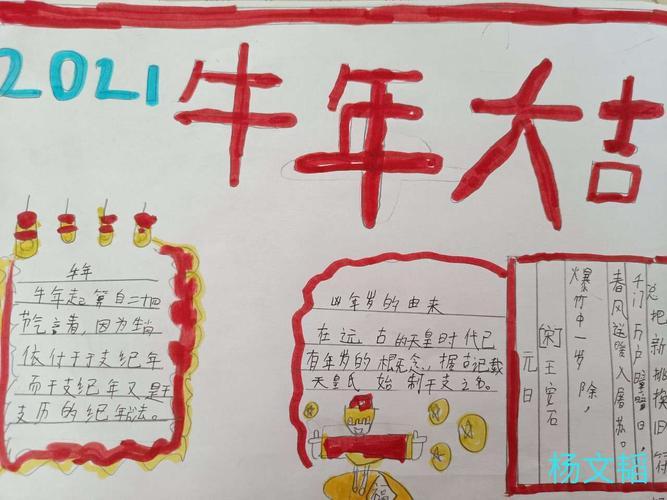 2021 牛年大吉
牛年
牛年起算自二十四
节气立春，因为生肖
依付于干支纪年
而干支纪年又是干
支历的纪年法。
年岁的由来
在远古的天皇时代已
有年岁的概念，据记载
天皇氏始制干支之名。
元日
[宋]王安石
爆竹中一岁除，
春风送暖入屠苏。
千门万户曈曈日，
总把新桃换旧符
福
杨文韬